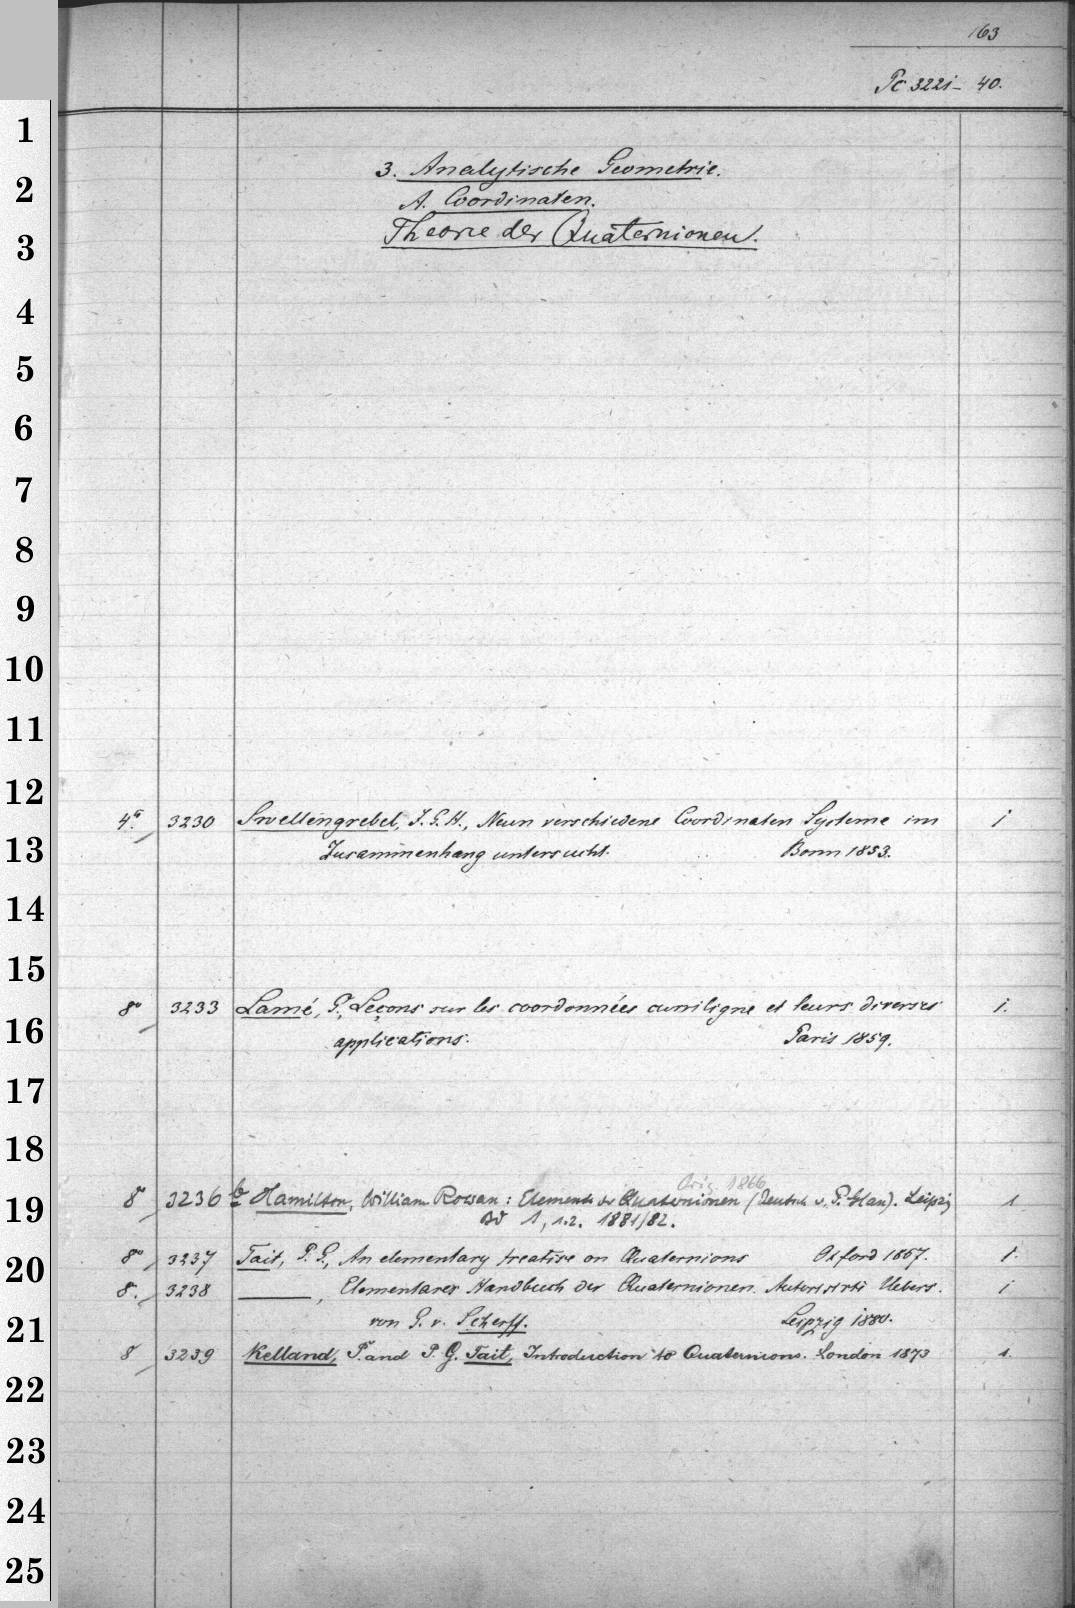 163
Pc 3221- 40.
3. Analytische Geometrie.
A. Coordinaten.
Theorie der Quaternionen.
4° 3230 Swellengrebel, J. G. H., Neun verschiedene Coordinaten Systeme im 1
Zusammenhang untersucht. Bonn 1853.
8° 3233 Lamé, G., Leçons sur les coordonnées curviligne et leurs diverses 1.
applications. Paris 1859.
Orig. 1866
8° 3236 b Hamilton, William Rowan: Elemente der Quaternionen (Deutsch v. P. Glan). Leipzig 1
Bd 1, 1.2. 1881/82.
8° 3237 Tait, P. G., An elementary treatise on Quaternions Oxford 1867. 1.
8. 3238 ———, Elementares Handbuch der Quaternionen. Autorisirte Uebers. 1
von G. v. Scherff. Leipzig 1880.
8 3239 Kelland, P. and P. G. Tait, Introduction to Quaternions. London 1873 1.
1
2
3
4
5
6
7
8
9
10
11
12
13
14
15
16
17
18
19
20
21
22
23
24
25